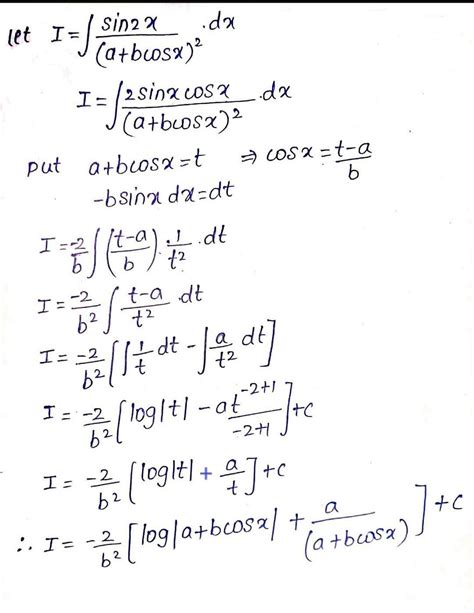 let I=∫ sin2x/(a+bcosx)² .dx
I=∫ 2sinx cosx/(a+bcosx)² .dx
put a+bcosx=t ⇒ cosx = t-a/b
-bsinx dx=dt
I=-2/b ∫ (t-a/b) . 1/t² .dt
I= -2/b² ∫ t-a/t² .dt
I= -2/b² [∫ 1/t dt - ∫ a/t² dt]
I= -2/b² [log|t| - at^-2+1/-2+1]+c
I= -2/b² [log|t| + a/t]+c
∴ I= -2/b² [log|a+bcosx| + a/(a+bcosx)]+c